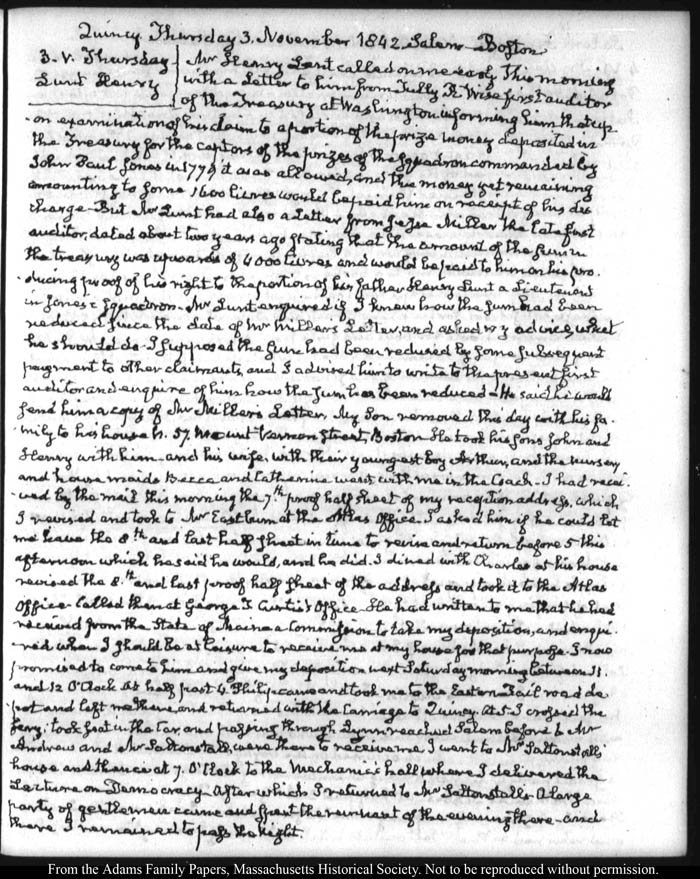 Quincy Thursday 3. November 1842. Salem - Boston
3. V. Thursday
Lunt Henry
Mr Henry Lunt called on me early this morning
with a Letter to him from Tully R. Wise first auditor
of the Treasury at Washington informing him that up-
-on examination of his claim to a portion of the prize money deposited in
the Treasury for the captors of the prizes of the Squadron commanded by
John Paul Jones in 1779 it was allowed, and the money yet remaining
amounting to some 1600 livres would be paid him on receipt of his dis
charge - But Mr Lunt had also a Letter from Jesse Miller the late first
auditor, dated about two years ago stating that the amount of the sum in
the treasury was upwards of 4000 livres and would be paid to him on his pro-
-ducing proof of his right to the portion of his father Henry Lunt a Lieutenant
in Jones's Squadron. Mr Lunt enquired if I knew how the sum had been
reduced since the date of Mr Miller's Letter, and asked my advice, what
he should do. I supposed the sum had been reduced by some subsequent
payment to other claimants, and I advised him to write to the present first
auditor and enquire of him how the sum has been reduced - He said he would
send him a copy of Mr Miller's Letter. My Son removed this day with his fa-
-mily to his house N. 57. Mount Vernon Street, Boston. He took his Sons John and
Henry with him - and his wife, with their youngest boy Arthur, and the nursery
and house maids Becca and Catherine went with me in the Coach - I had recei-
-ved by the mail this morning the 7.th proof half sheet of my reception address, which
I revised and took to Mr Eastburn at the Atlas Office. I asked him if he could let
me have the 8th and last half sheet in time to revise and return before 5 this
afternoon which he said he would, and he did. I dined with Charles at his house
revised the 8.th and last proof half sheet of the address and took it to the Atlas
Office - Called then at George T. Curtis's Office - He had written to me that he had
received from the State of Maine a Commission to take my deposition, and enqui-
-red when I should be at leisure to receive me at my house for that purpose. I now
promised to come to him and give my deposition next Saturday morning between 11.
and 12 O'Clock At half past 4. Philip came and took me to the Eastern Rail road de-
-pot and left me there, and returned with the Carriage to Quincy. At 5 I crossed the
ferry, took seat in the Car, and passing through Lynn reached Salem before 6 Mr
Andrews and Mr Saltonstall, were there to receive me I went to Mr Saltonstall's
house and thence at 7. O'Clock to the Mechanic's hall where I delivered the
Lecture on Democracy. After which I returned to Mr Saltonstall's. A large
party of gentlemen came and spent the remnant of the evening there - and
there I remained to pass the night.
From the Adams Family Papers, Massachusetts Historical Society. Not to be reproduced without permission.